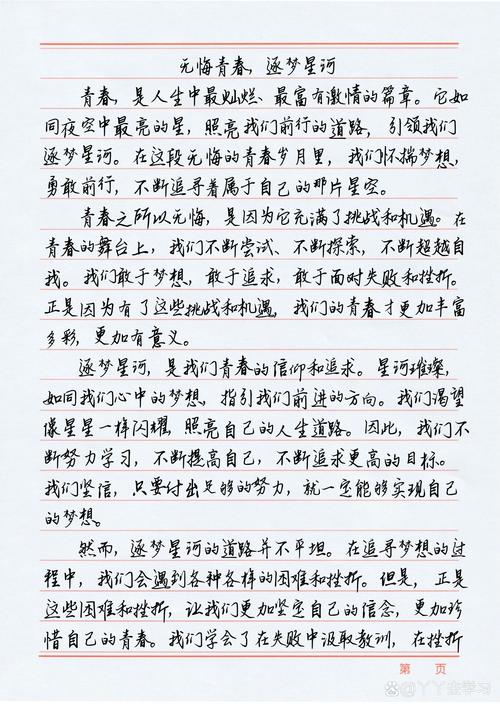 无悔青春，逐梦星河
青春，是人生中最灿烂、最富有激情的篇章。它如
同夜空中最亮的星，照亮我们前行的道路，引领我们
逐梦星河。在这段无悔的青春岁月里，我们怀揣梦想，
勇敢前行，不断追寻着属于自己的那片星空。
青春之所以无悔，是因为它充满了挑战和机遇。在
青春的舞台上，我们不断尝试、不断探索，不断超越自
我。我们敢于梦想，敢于追求，敢于面对失败和挫折。
正是因为有了这些挑战和机遇，我们的青春才更加丰富
多彩，更加有意义。
逐梦星河，是我们青春的信仰和追求。星河璀璨，
如同我们心中的梦想，指引我们前进的方向。我们渴望
像星星一样闪耀，照亮自己的人生道路。因此，我们不
断努力学习，不断提高自己，不断追求更高的目标。
我们坚信，只要付出足够的努力，就一定能够实现自己
的梦想。
然而，逐梦星河的道路并不平坦。在追寻梦想的过
程中，我们会遇到各种各样的困难和挫折。但是，正是
这些困难和挫折，让我们更加坚定自己的信念，更加珍
惜自己的青春。我们学会了在失败中汲取教训，在挫折
第 页
丫丫主学习